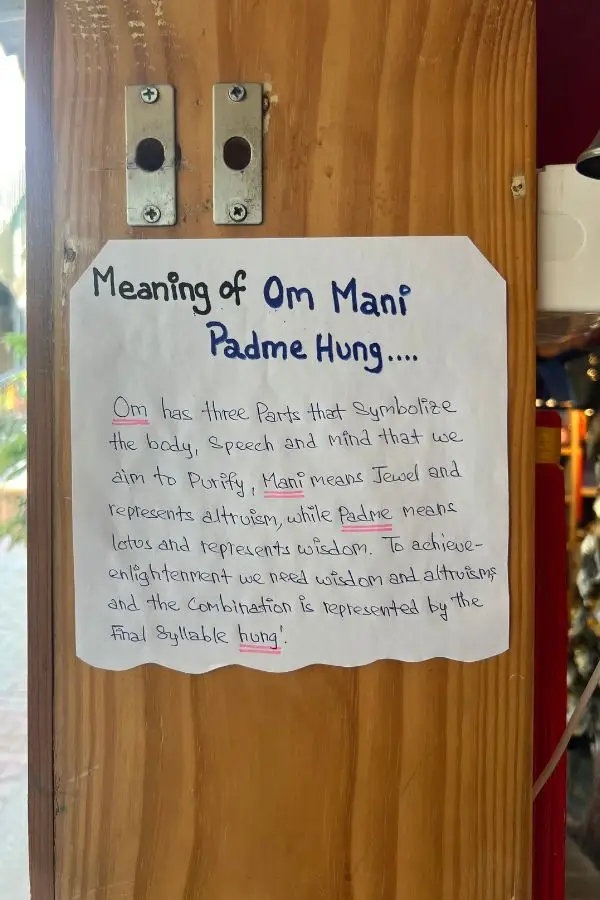 Meaning of Om Mani
Padme Hung....
Om has three Parts that Symbolize
the body, Speech and mind that we
aim to Purify, Mani means Jewel and
represents altruism, while Padme means
lotus and represents wisdom. To achieve-
enlightenment we need wisdom and altruisms
and the Combination is represented by the
Final Syllable hung'.